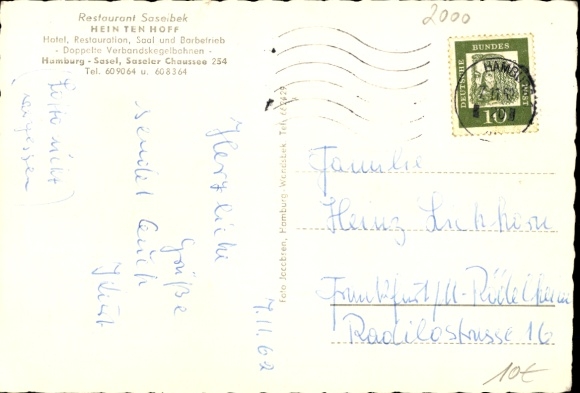 Restaurant Saselbek
HEIN TEN HOFF
Hotel, Restauration, Saal und Barbetrieb
- Doppelte Verbandskegelbahnen -
Hamburg - Sasel, Saseler Chaussee 254
Tel. 609064 u. 608364
2000
DEUTSCHE BUNDESPOST
10
HAMBURG
7.11.62
Herzliche
Grüße
sendet Euch
(bitte nicht
vergessen)
Foto Jacobsen, Hamburg-Wandsbek Telf.
Familie
Heinz
Frankfurt/M-Rödelheim
Radilostrasse 16
10€